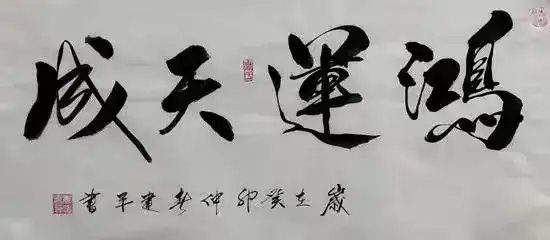 鸿運天成
歲在癸卯仲春建平書